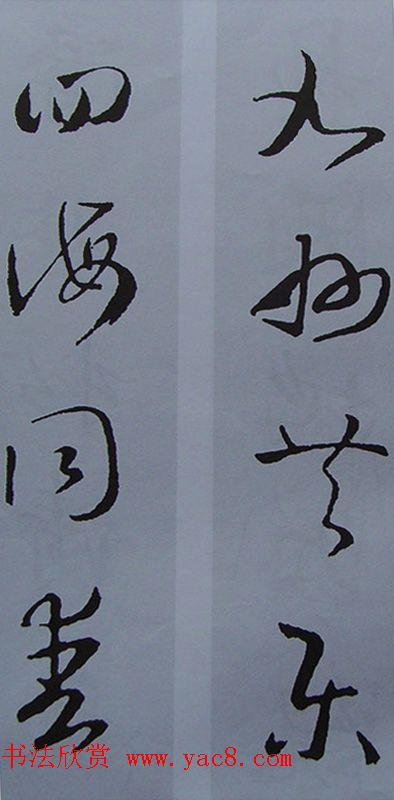 九州共乐
四海同春
书法欣赏 www.yac8.com